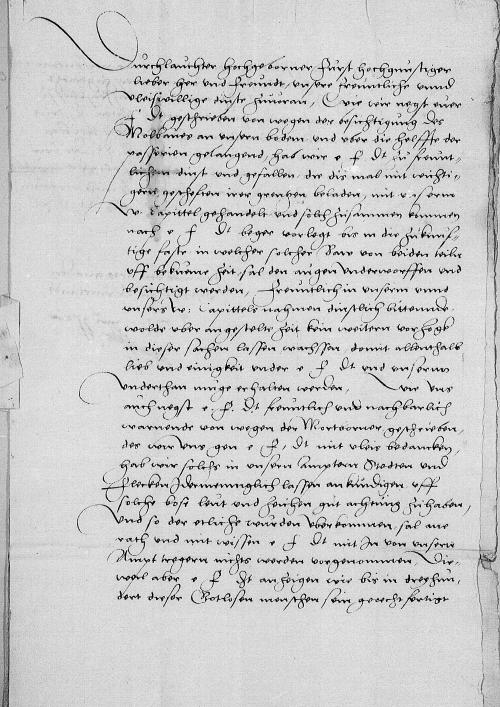 Durchlauchter Hochgeborner Furst hochgunstiger
lieber her und freundt, unsere freuntliche unnd
vleiswillige dinst zuuoran, Wie wir negst euer
f dt geschrieben von wegen der besichtigung des
an unsern boden und uber die helffte der
gelangend, hab wir e f dt zu freunt-
lichem dinst und gefallen die dis mal mit wichti-
gen gescheften irer grentzen beladen, mit unserm
w. Capittel gehandelt und solch zusammen kummen
nach e f dt beger vorlegt bis in die zukunf-
tige faste in welcher solcher von beiden teiln
uff bequeme zeit sal den augen underworffen und
besichtigt werden, freuntlich in unserm unnd
unsers w: Capittels nahmen dinstlich bittennde
wolde uber angestelte zeit kein weitern vorzogk
in dieser sachen lassen wachssen, domit allenthalb
lieb und einigkeit under e f dt und unserm
underthan muge erhalten werden, Wie uns
auch negst e. f. dt freuntlich und nachbarlich
warnende von wegen der Mortborner geschrieben,
des wir uns gen e f dt mit vleis bedancken,
hab wir solchs in unsern Ampten Stedten und
Flecken idermenniglich lassen ankundigen uff
solche bose leut und zeichen gut achtung zuhaben,
Und so der etliche wurden uberkommen, sal ane
rath und mit wissen e f dt mit in von unsern
Ampt tregern nichts werden vorgenommen, Die-
weyl aber e f dt anzeigen wie bis in dreyhun-
dert dieser Gotlosen menschen sein gerechtfertigt